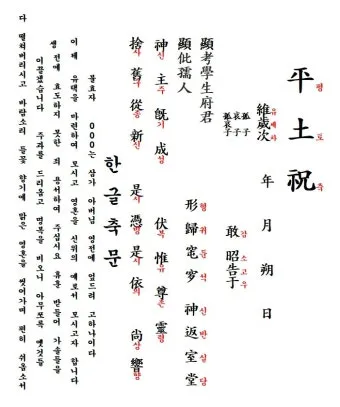 平土祝
평토축
維歲次 年 月 朔 日
유세차
孤子
哀子
孤哀子
敢昭告于
감소고우
顯考學生府君
顯妣孺人
形歸窀穸 神返室堂
형귀둔석 신반실당
神主旣成 伏惟尊靈
신주기성 복유존령
捨舊從新 是憑是依 尙饗
사구종신 시빙시의 상향
한글축문
불효자 000는 삼가 아버님 영전에 엎드려 고하나이다
이제 유택을 마련하여 모시고 영혼을 신위의 예로서 모시고자 합니다
생전에 효도하지 못한 죄 용서하여 주십시요 유훈 받들어 가솔들을
이끌겠습니다 주과를 드리옵고 명복을 비오니 아무쪼록 옛것들
다 떨쳐버리시고 바람소리 들꽃 향기에 맑은 영혼을 씻어가며 편히 쉬옵소서